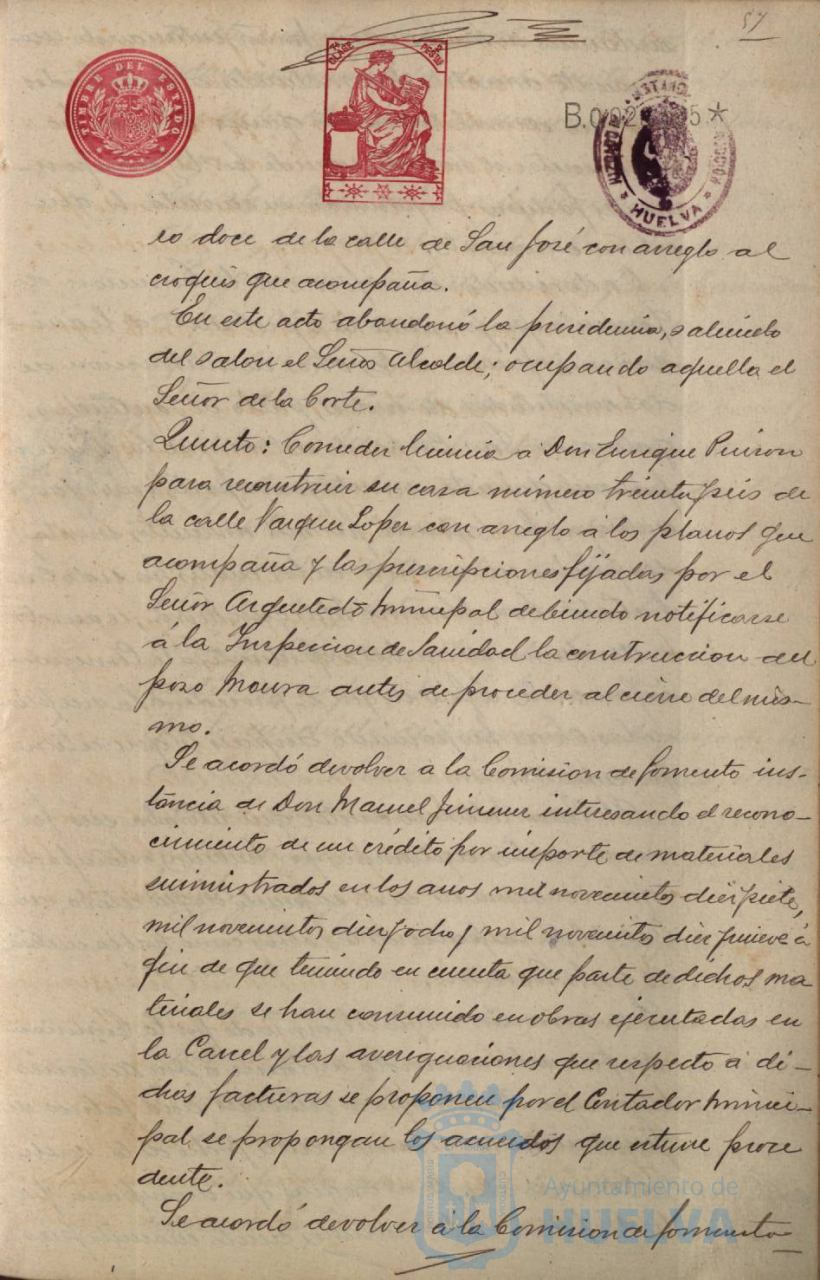 57
TIMBRE DEL ESTADO
7ª CLASE
HUELVA
ro doce de la calle de San José con arreglo al
croquis que acompaña.
En este acto abandonó la presidencia, saliendo
del salon el Señor Alcalde; ocupando aquella el
Señor de la Corte.
Quinto: Conceder licencia á Don Enrique
para reconstruir su casa número treinta y seis de
la calle Vazquez Lopez con arreglo á los planos que
acompaña y las prescripciones fijadas por el
Señor Arquitecto Municipal debiendo notificarse
á la Inspeccion de Sanidad la construccion del
pozo Moura antes de proceder al cierre del mis-
mo.
Se acordó devolver a la Comision de fomento ins-
tancia de Don Manuel Jimenez interesando el recono-
cimiento de un crédito por importe de materiales
suministrados en los anos mil novecientos diez y siete,
mil novecientos diez y ocho y mil novecientos diez y nueve á
fin de que teniendo en cuenta que parte de dichos ma
teriales se han consumido en obras ejecutadas en
la Carcel y las averiguaciones que respecto a di-
chas facturas se proponen por el Contador Munici-
pal se propongan los acuerdos que estime proce
dente.
Se acordó devolver á la Comision de fomento
Ayuntamiento de
HUELVA